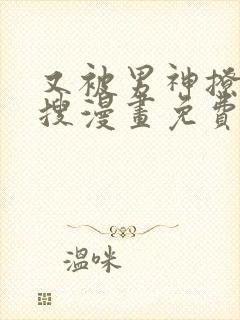 又被男神撩
搜漫畫免費
溫咪